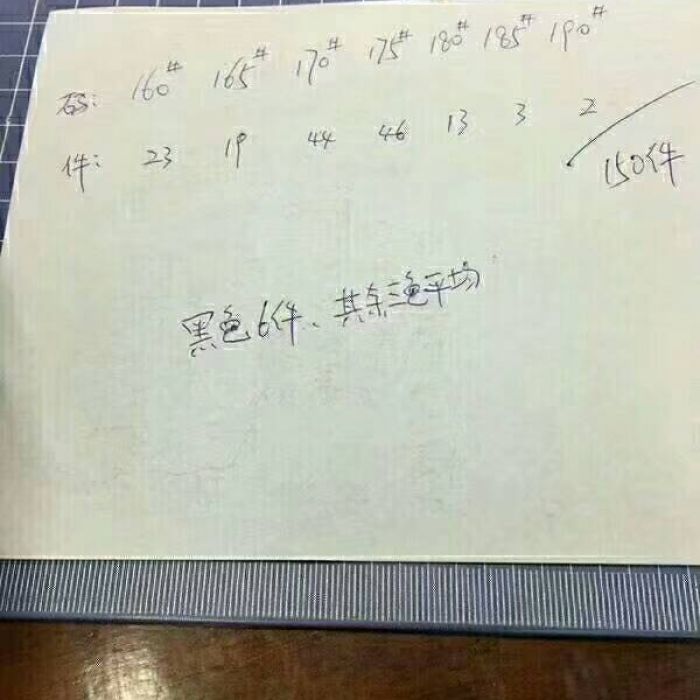 码: 160# 165# 170# 175# 180# 185# 190#
件: 23 19 44 46 13 3 2 150件
黑色6件、其余三色平均